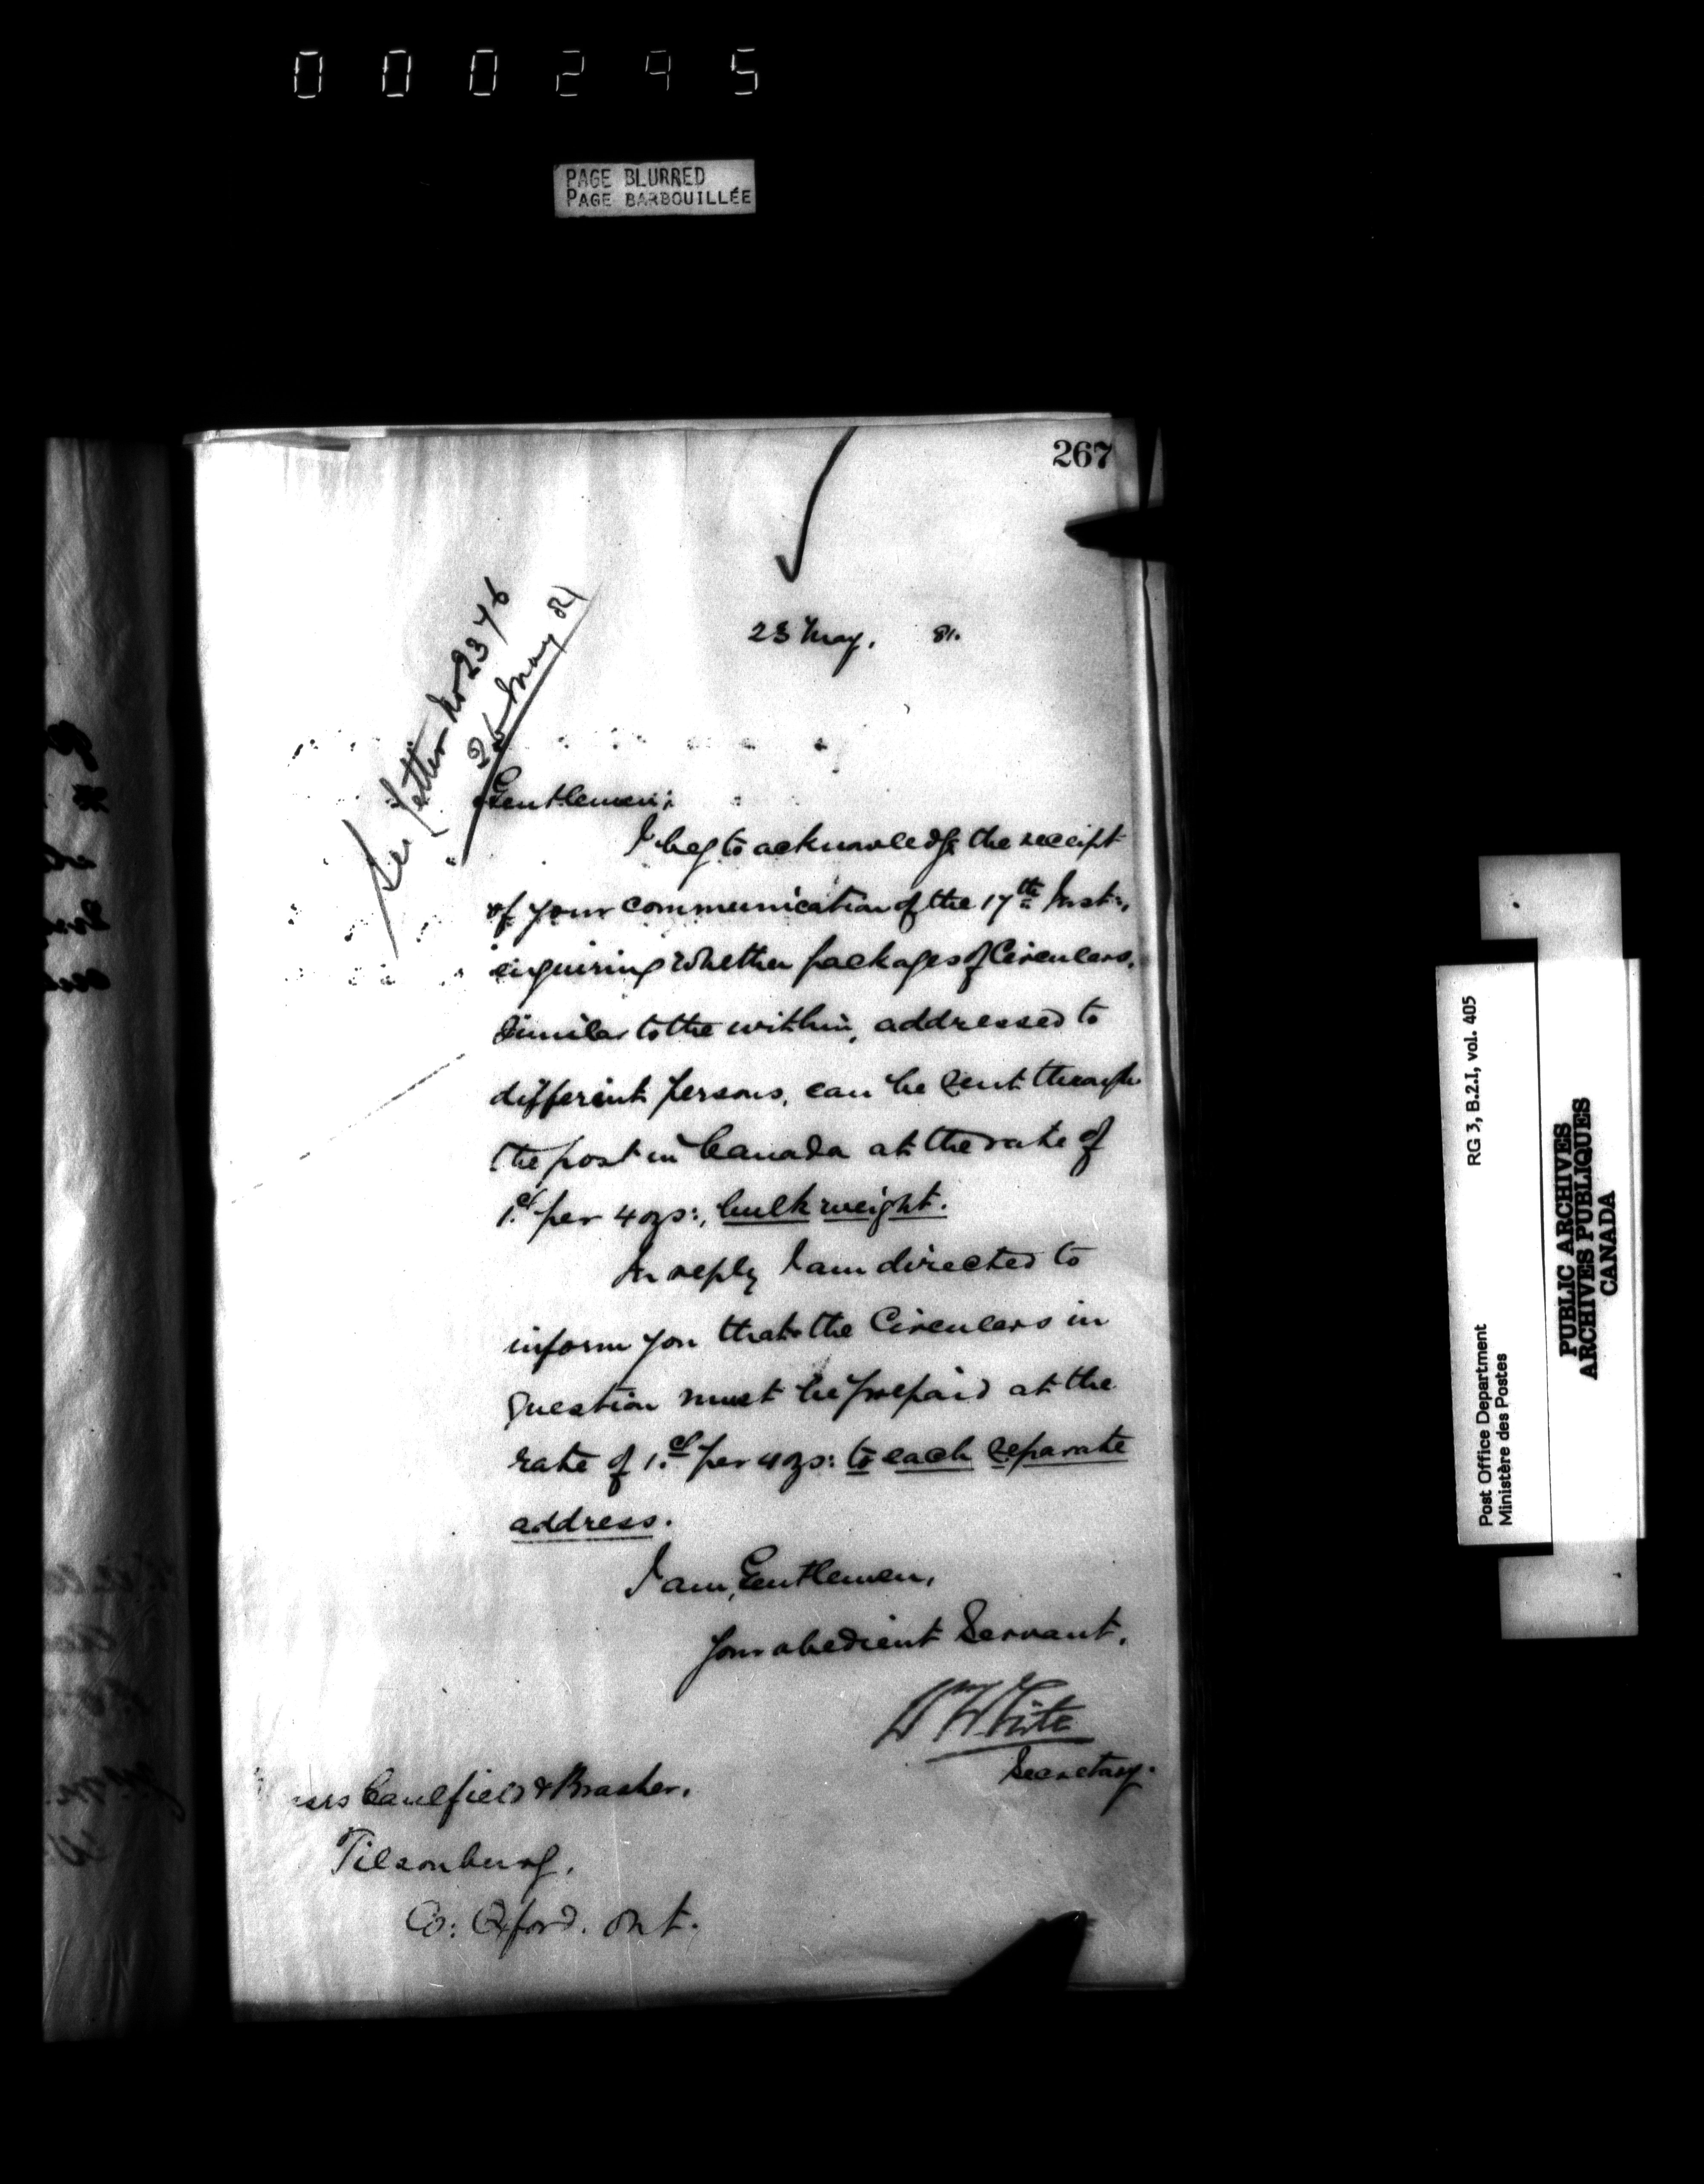 000295
PAGE BLURRED
PAGE BARBOUILLÉE
267
23 May. 81.
See letter No 2376
25 May 81
Gentlemen;
I beg to acknowledge the receipt
of your communication of the 17th Inst:,
inquiring whether packages of Circulars,
similar to the within, addressed to
different persons, can be sent through
the post in Canada at the rate of
1.ct per 4 ozs:, bulk weight.
In reply I am directed to
inform you that the Circulars in
question must be prepaid at the
rate of 1.ct per 4 ozs: to each separate
address.
I am, Gentlemen,
Your obedient Servant,
Wm White
Secretary.
Caulfield & Brasher,
Tilsonburg,
Co: Oxford. Ont.
Post Office Department
Ministère des Postes
RG 3, B.2.I, vol. 405
PUBLIC ARCHIVES
ARCHIVES PUBLIQUES
CANADA